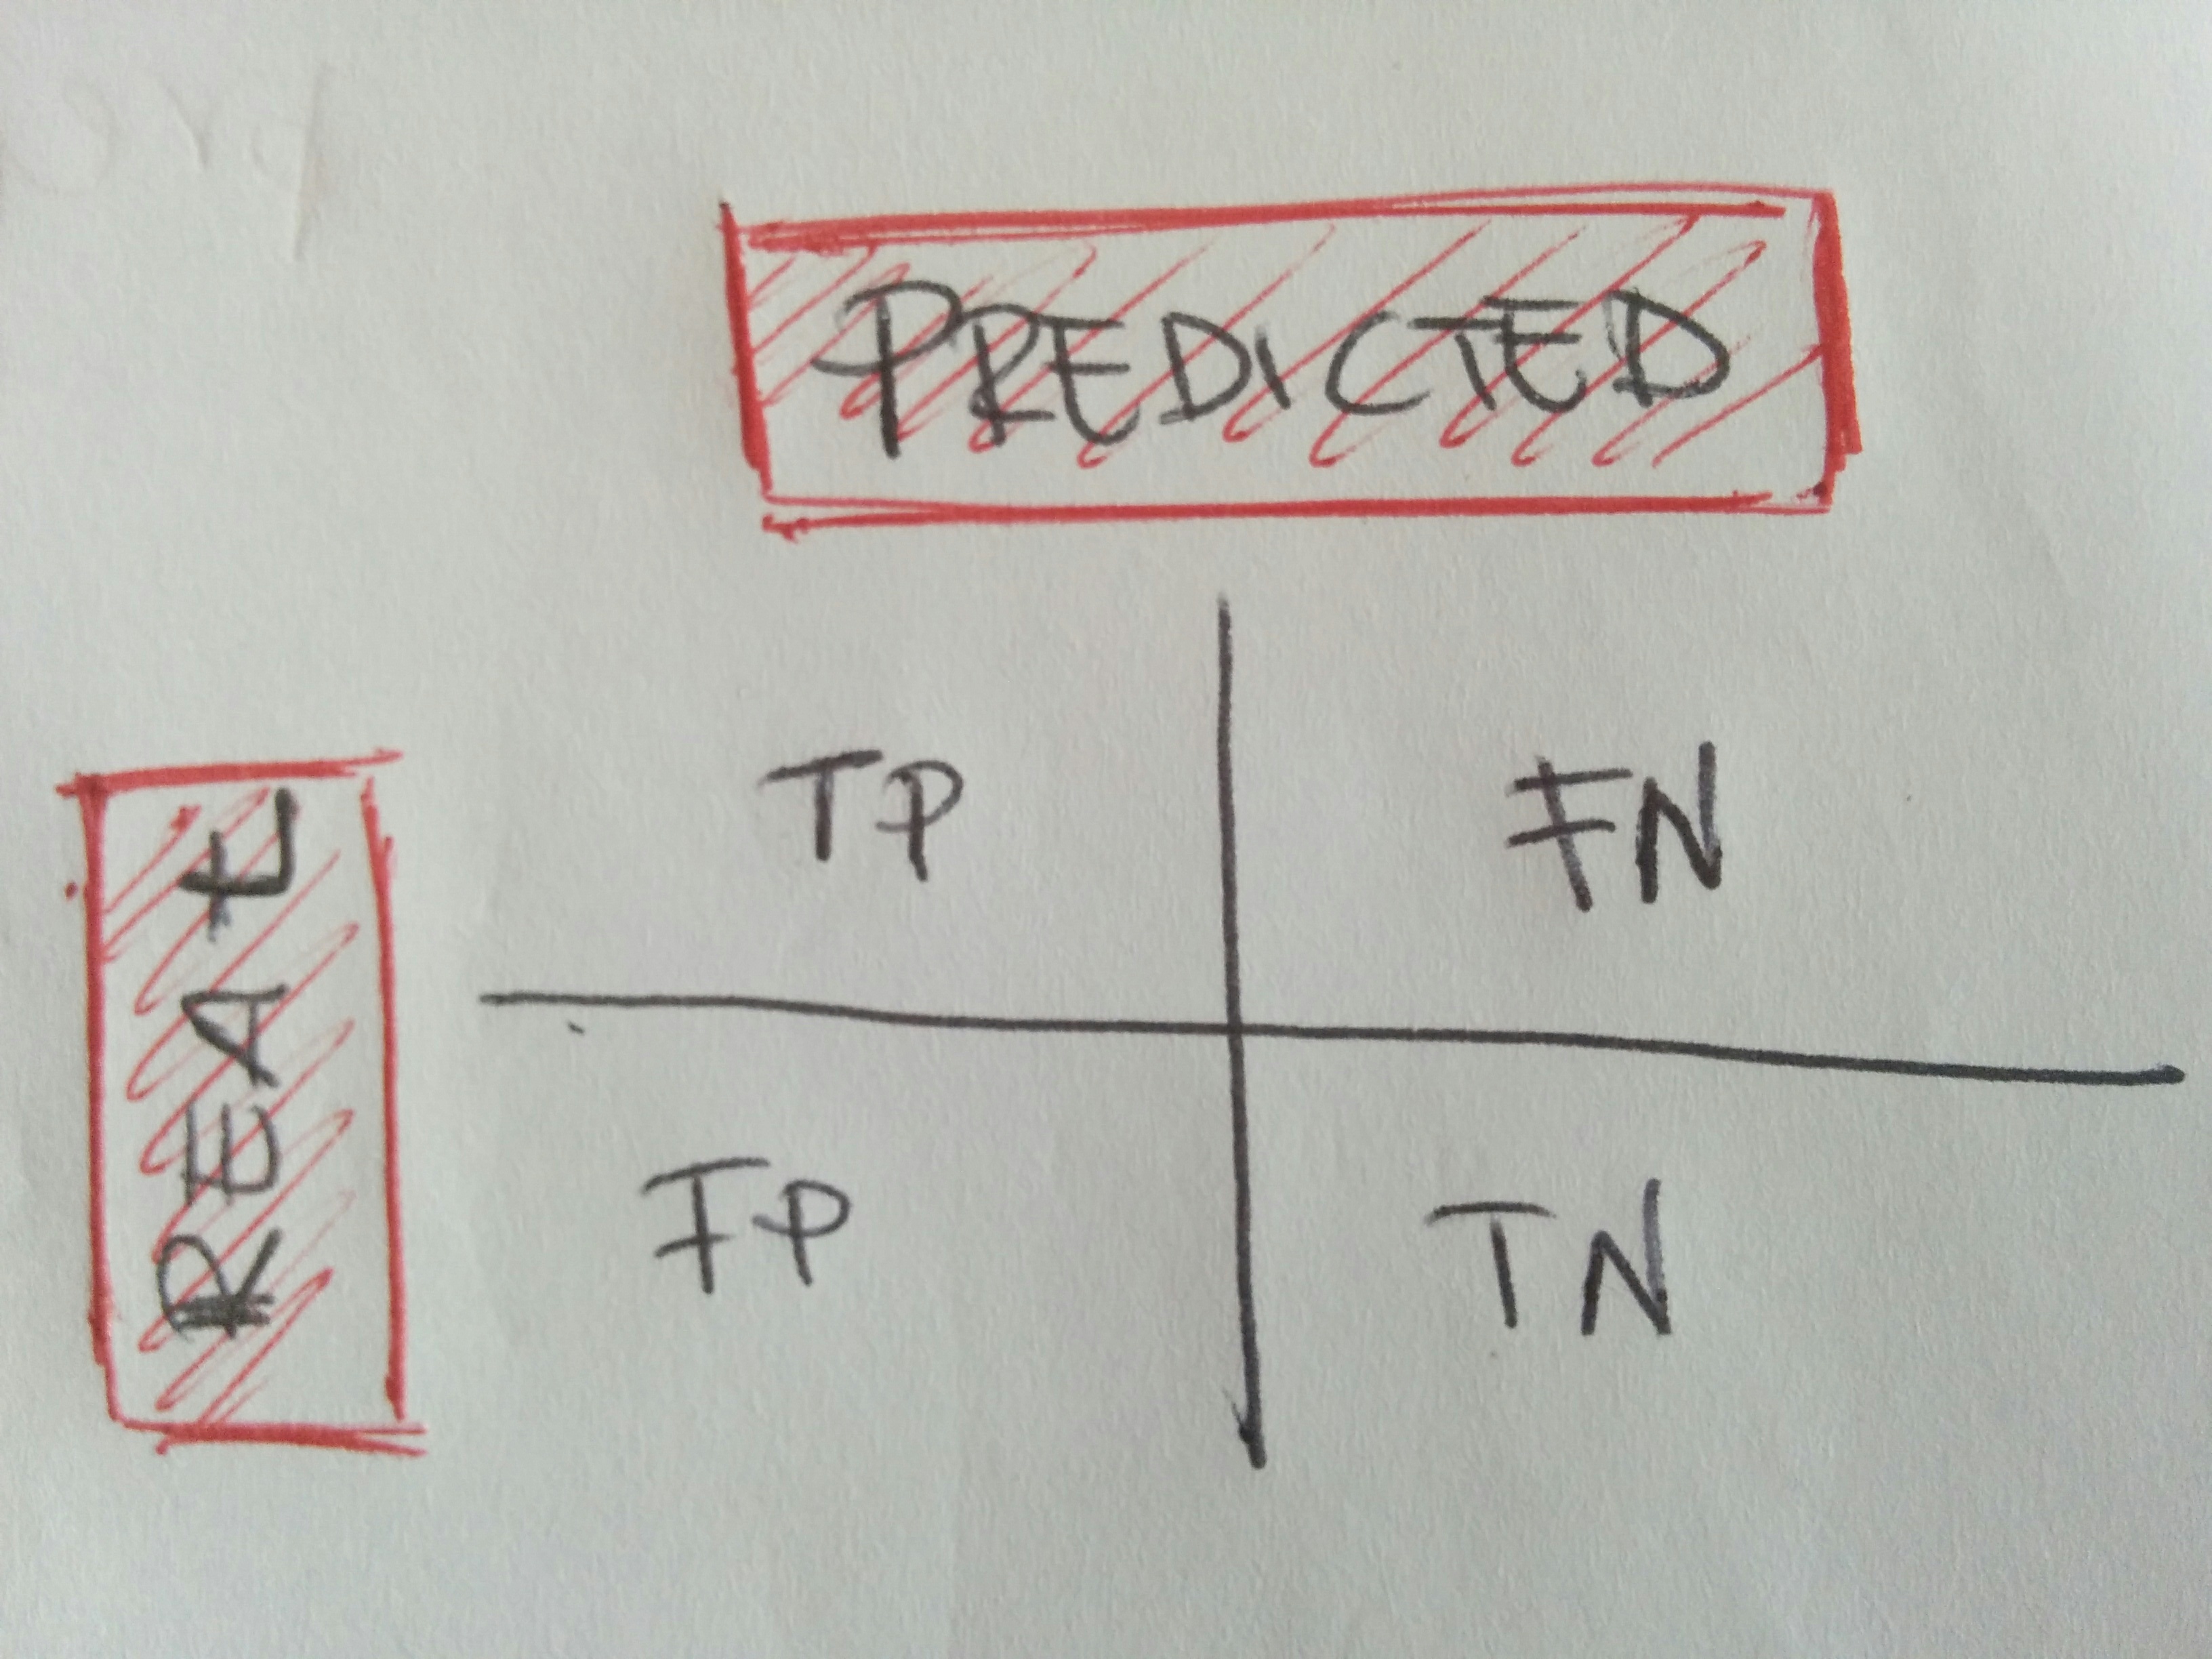 PREDICTED
REAL
TP FN
FP TN